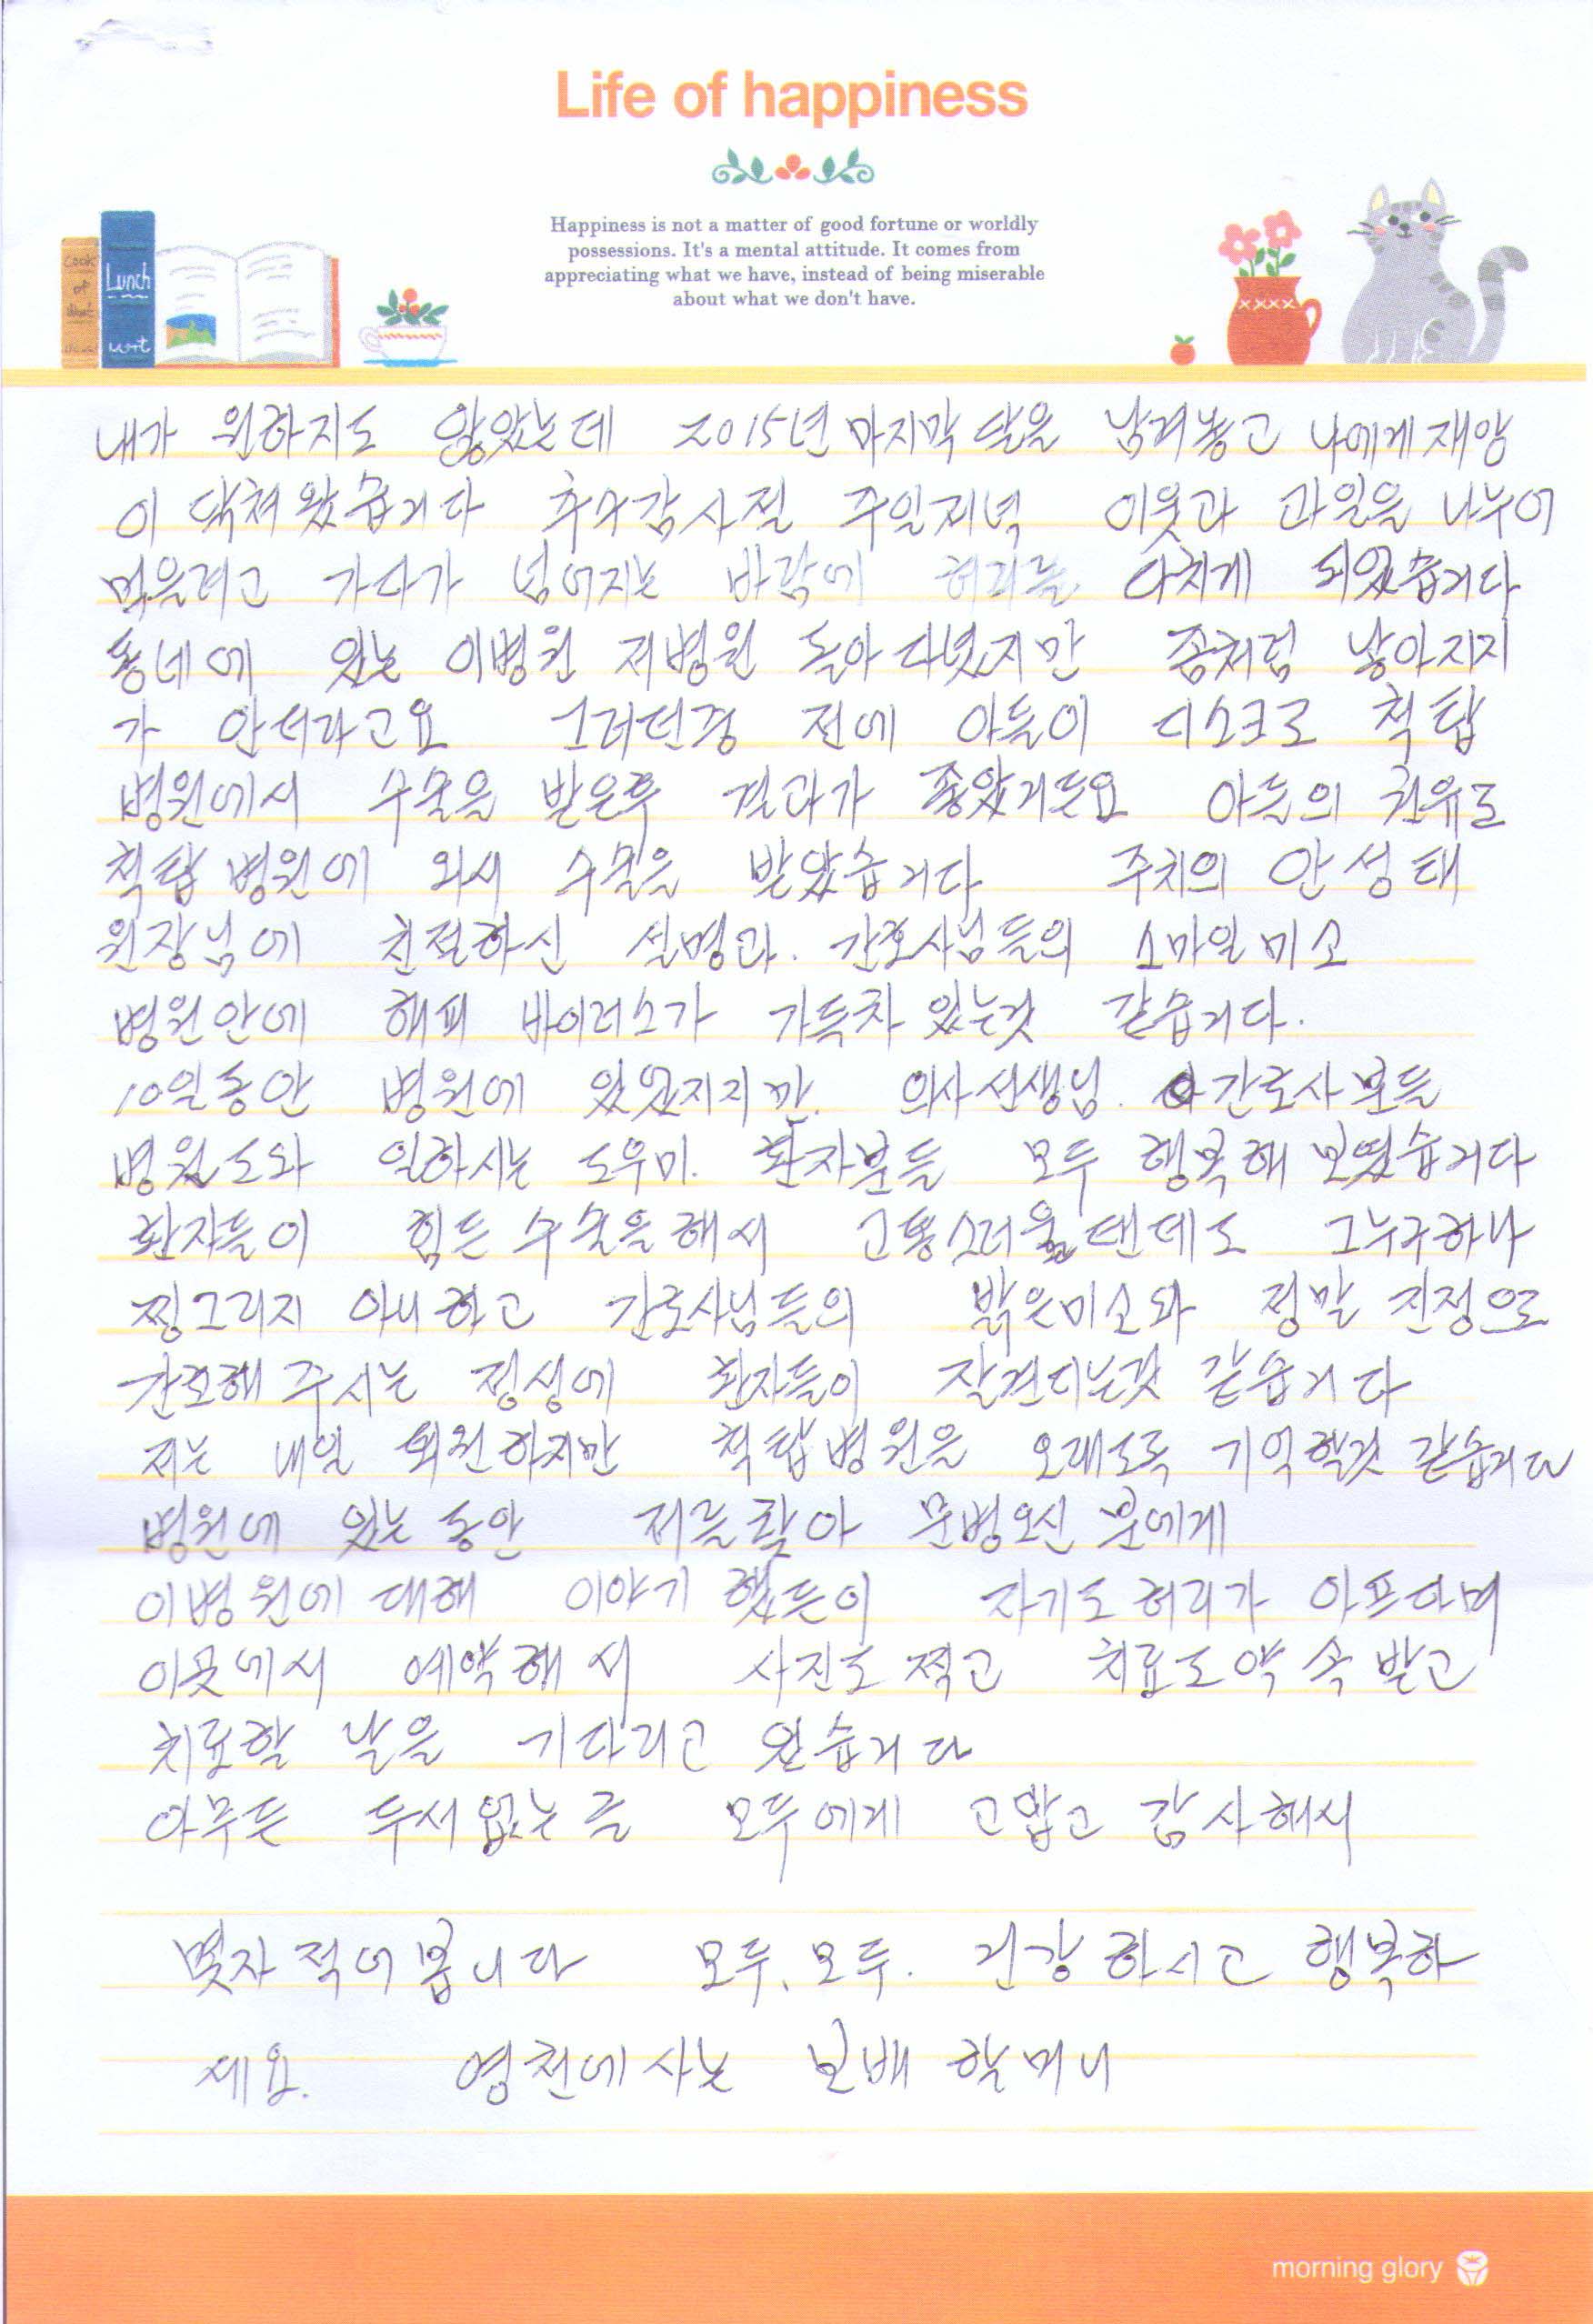 Life of happiness
Happiness is not a matter of good fortune or worldly
possessions. It's a mental attitude. It comes from
appreciating what we have, instead of being miserable
about what we don't have.
Cook
of
Lunch
내가 원하지도 않았는데 2015년 마지막 달을 남겨놓고 나에게 재앙
이 닥쳐왔습니다 추수감사절 주일저녁 이웃과 과일을 나누어
먹을려고 가다가 넘어지는 바람에 허리를 다치게 되었습니다
동네에 있는 이병원 저병원 돌아다녔지만 좀처럼 낳아지지
가 안터라고요 그러던중 전에 아들이 디스크로 척탑
병원에서 수술을 받은후 결과가 좋았거든요 아들의 권유로
척탑병원에 와서 수술을 받았습니다 주치의 안성태
원장님에 친절하신 설명과. 간호사님들의 스마일 미소
병원안에 해피 바이러스가 가득차 있는것 같습니다.
10일동안 병원에 있었지지만. 의사선생님. 간호사분들
병원도와 일하시는 도우미. 환자분들 모두 행복해 보였습니다
환자들이 힘든 수술을 해서 고통스러울텐데도 그누구하나
찡그리지 아니하고 간호사님들의 밝은미소와 정말 진정으로
간호해 주시는 정성에 환자들이 잘견디는것 같습니다
저는 내일 퇴원하지만 척탑병원은 오래도록 기억할것 같습니다
병원에 있는 동안 저를 찾아 문병오신 분에게
이병원에 대해 이야기 했든이 자기도 허리가 아프다며
이곳에서 예약해서 사진도 찍고 치료도약속 받고
치료할 날을 기다리고 있습니다
아무튼 두서없는 글 모두에게 고맙고 감사해서
몇자 적어봅니다 모두, 모두. 건강하시고 행복하
세요. 영천에사는 보배 할머니
morning glory